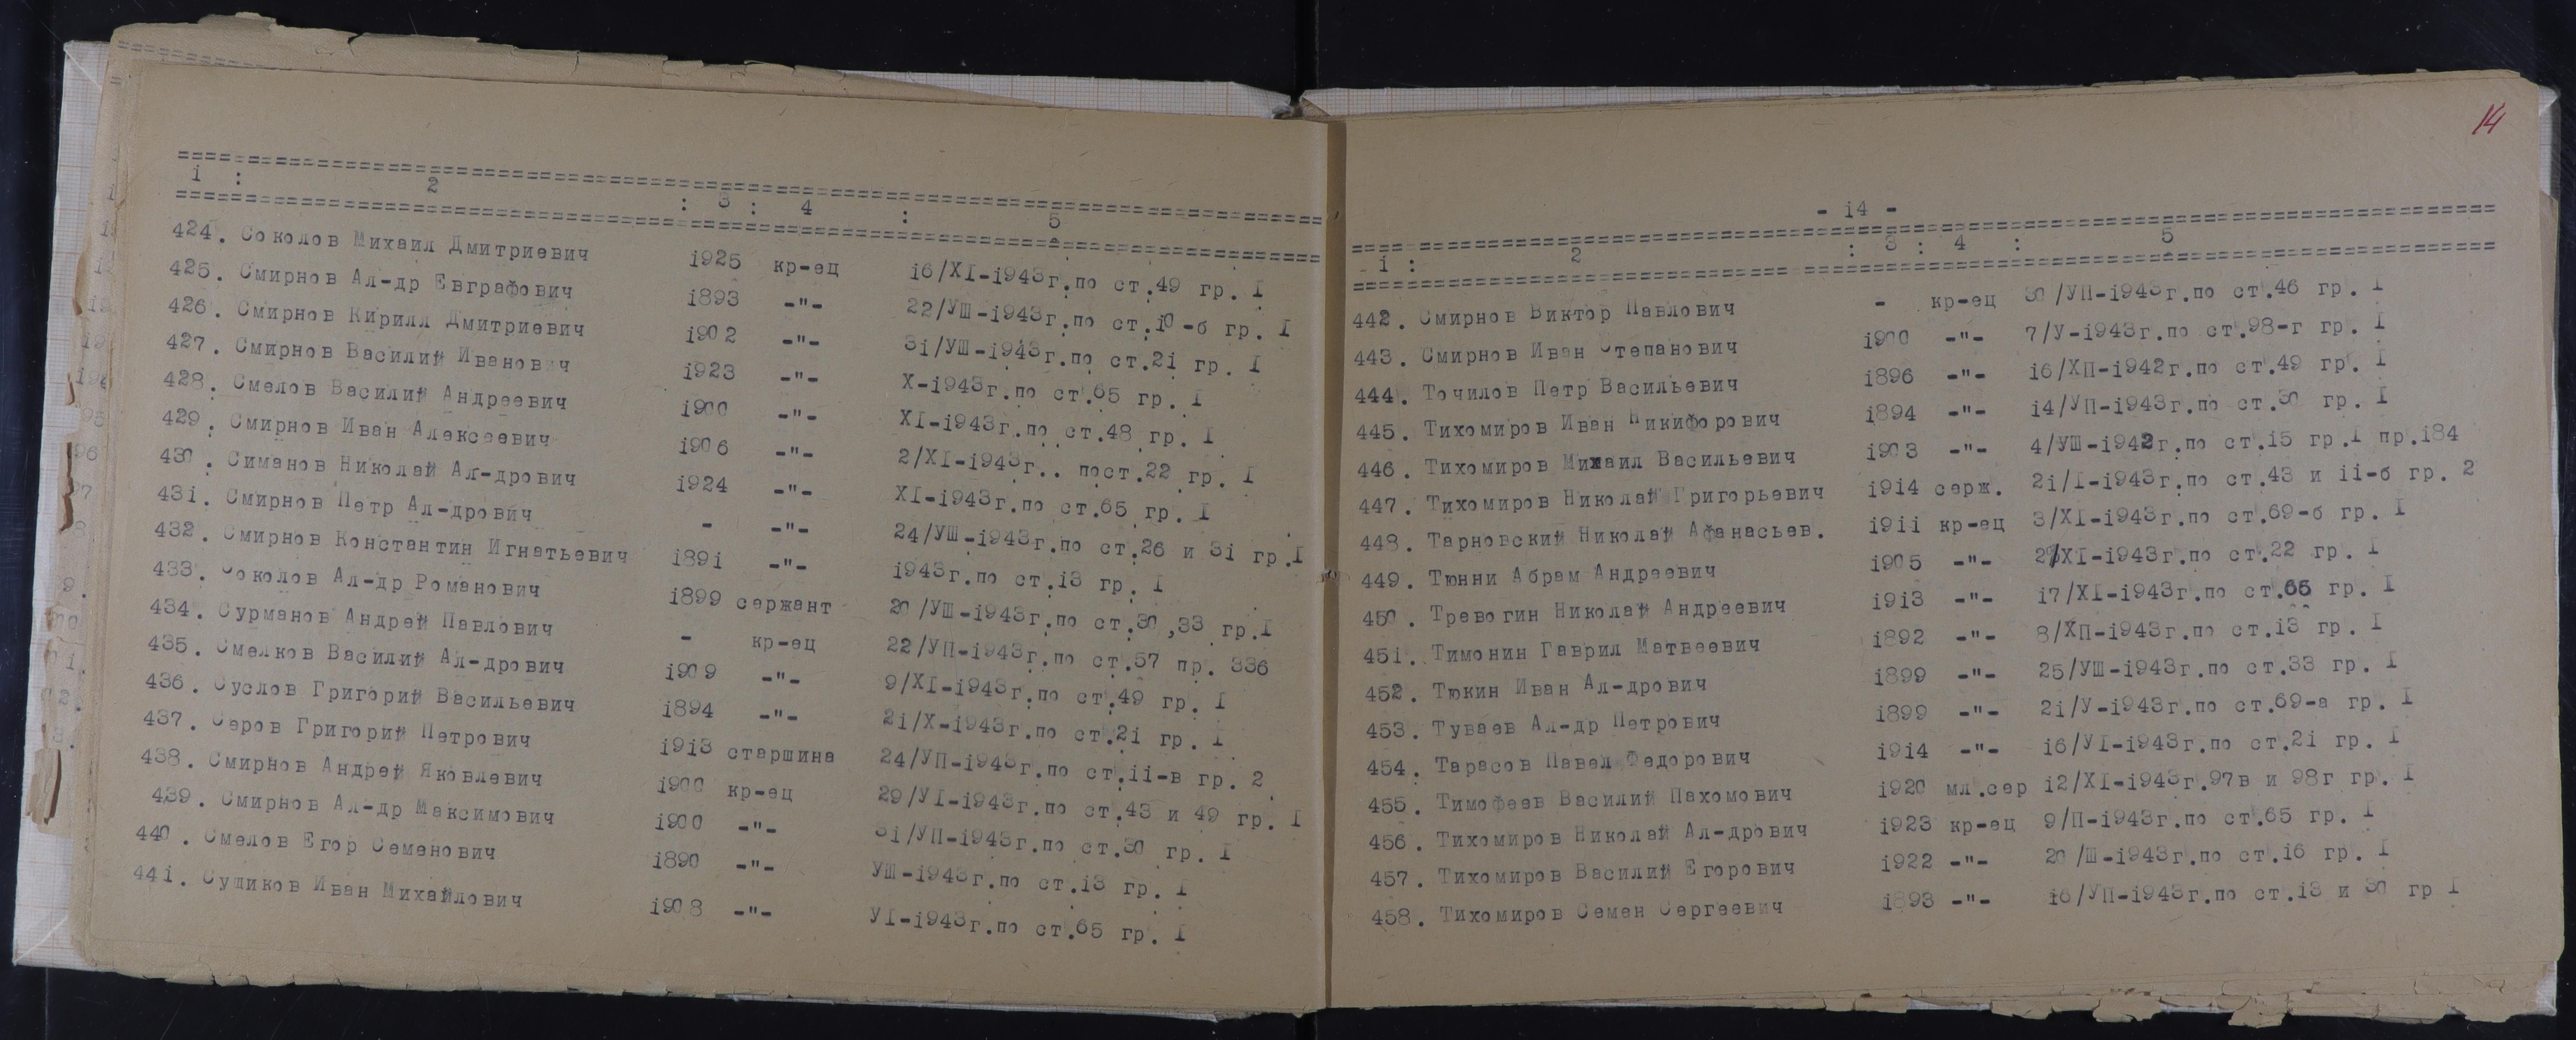 1 : 2 : 3 : 4 : 5
424. Соколов Михаил Дмитриевич 1925 кр-ец 16/XI-1943г.по ст.49 гр. I
425. Смирнов Ал-др Евграфович 1893 -"- 22/УШ-1943г.по ст.10-б гр. I
426. Смирнов Кирилл Дмитриевич 1902 -"- 31/УШ-1943г.по ст.21 гр. I
427. Смирнов Василий Иванович 1923 -"- X-1943г.по ст.65 гр. I
428. Смелов Василий Андреевич 1900 -"- XI-1943г.по ст.48 гр. I
429. Смирнов Иван Алексеевич 1906 -"- 2/XI-1943г.. пост.22 гр. I
430. Симанов Николай Ал-дрович 1924 -"- XI-1943г.по ст.65 гр. I
431. Смирнов Петр Ал-дрович - -"- 24/УШ-1943г.по ст.26 и 31 гр.I
432. Смирнов Константин Игнатьевич 1891 -"- 1943г.по ст.13 гр. I
433. Соколов Ал-др Романович 1899 сержант 20/УШ-1943г.по ст.30,33 гр.I
434. Сурманов Андрей Павлович - кр-ец 22/УП-1943г.по ст.57 пр. 336
435. Смелков Василий Ал-дрович 1909 -"- 9/XI-1943г.по ст.49 гр. I
436. Суслов Григорий Васильевич 1894 -"- 21/X-1943г.по ст.21 гр. I
437. Серов Григорий Петрович 1913 старшина 24/УП-1943г.по ст.11-в гр. 2
438. Смирнов Андрей Яковлевич 1900 кр-ец 29/УI-1943г.по ст.43 и 49 гр. I
439. Смирнов Ал-др Максимович 1900 -"- 31/УП-1943г.по ст.30 гр. I
440. Смелов Егор Семенович 1890 -"- УШ-1943г.по ст.13 гр. I
441. Сушиков Иван Михайлович 1908 -"- УI-1943г.по ст.65 гр. I
14
- 14 -
1 : 2 : 3 : 4 : 5
442. Смирнов Виктор Павлович - кр-ец 30/УП-1943г.по ст.46 гр. I
443. Смирнов Иван Степанович 1900 -"- 7/У-1943г.по ст.98-г гр. I
444. Точилов Петр Васильевич 1896 -"- 16/ХП-1942г.по ст.49 гр. I
445. Тихомиров Иван Никифорович 1894 -"- 14/УП-1943г.по ст.30 гр. I
446. Тихомиров Михаил Васильевич 1903 -"- 4/УШ-1942г.по ст.15 гр.I пр.184
447. Тихомиров Николай Григорьевич 1914 серж. 21/I-1943г.по ст.43 и 11-б гр. 2
448. Тарновский Николай Афанасьев. 1911 кр-ец 3/XI-1943г.по ст.69-б гр. I
449. Тюнни Абрам Андреевич 1905 -"- XI-1943г.по ст.22 гр. I
450. Тревогин Николай Андреевич 1913 -"- 17/XI-1943г.по ст.65 гр. I
451. Тимонин Гаврил Матвеевич 1892 -"- 8/ХП-1943г.по ст.13 гр. I
452. Тюкин Иван Ал-дрович 1899 -"- 25/УШ-1943г.по ст.33 гр. I
453. Туваев Ал-др Петрович 1899 -"- 21/У-1943г.по ст.69-а гр. I
454. Тарасов Павел Федорович 1914 -"- 16/УI-1943г.по ст.21 гр. I
455. Тимофеев Василий Пахомович 1920 мл.сер 12/XI-1943г.97в и 98г гр. I
456. Тихомиров Николай Ал-дрович 1923 кр-ец 9/П-1943г.по ст.65 гр. I
457. Тихомиров Василий Егорович 1922 -"- 20/Ш-1943г.по ст.16 гр. I
458. Тихомиров Семен Сергеевич 1893 -"- 16/УП-1943г.по ст.13 и 30 гр I